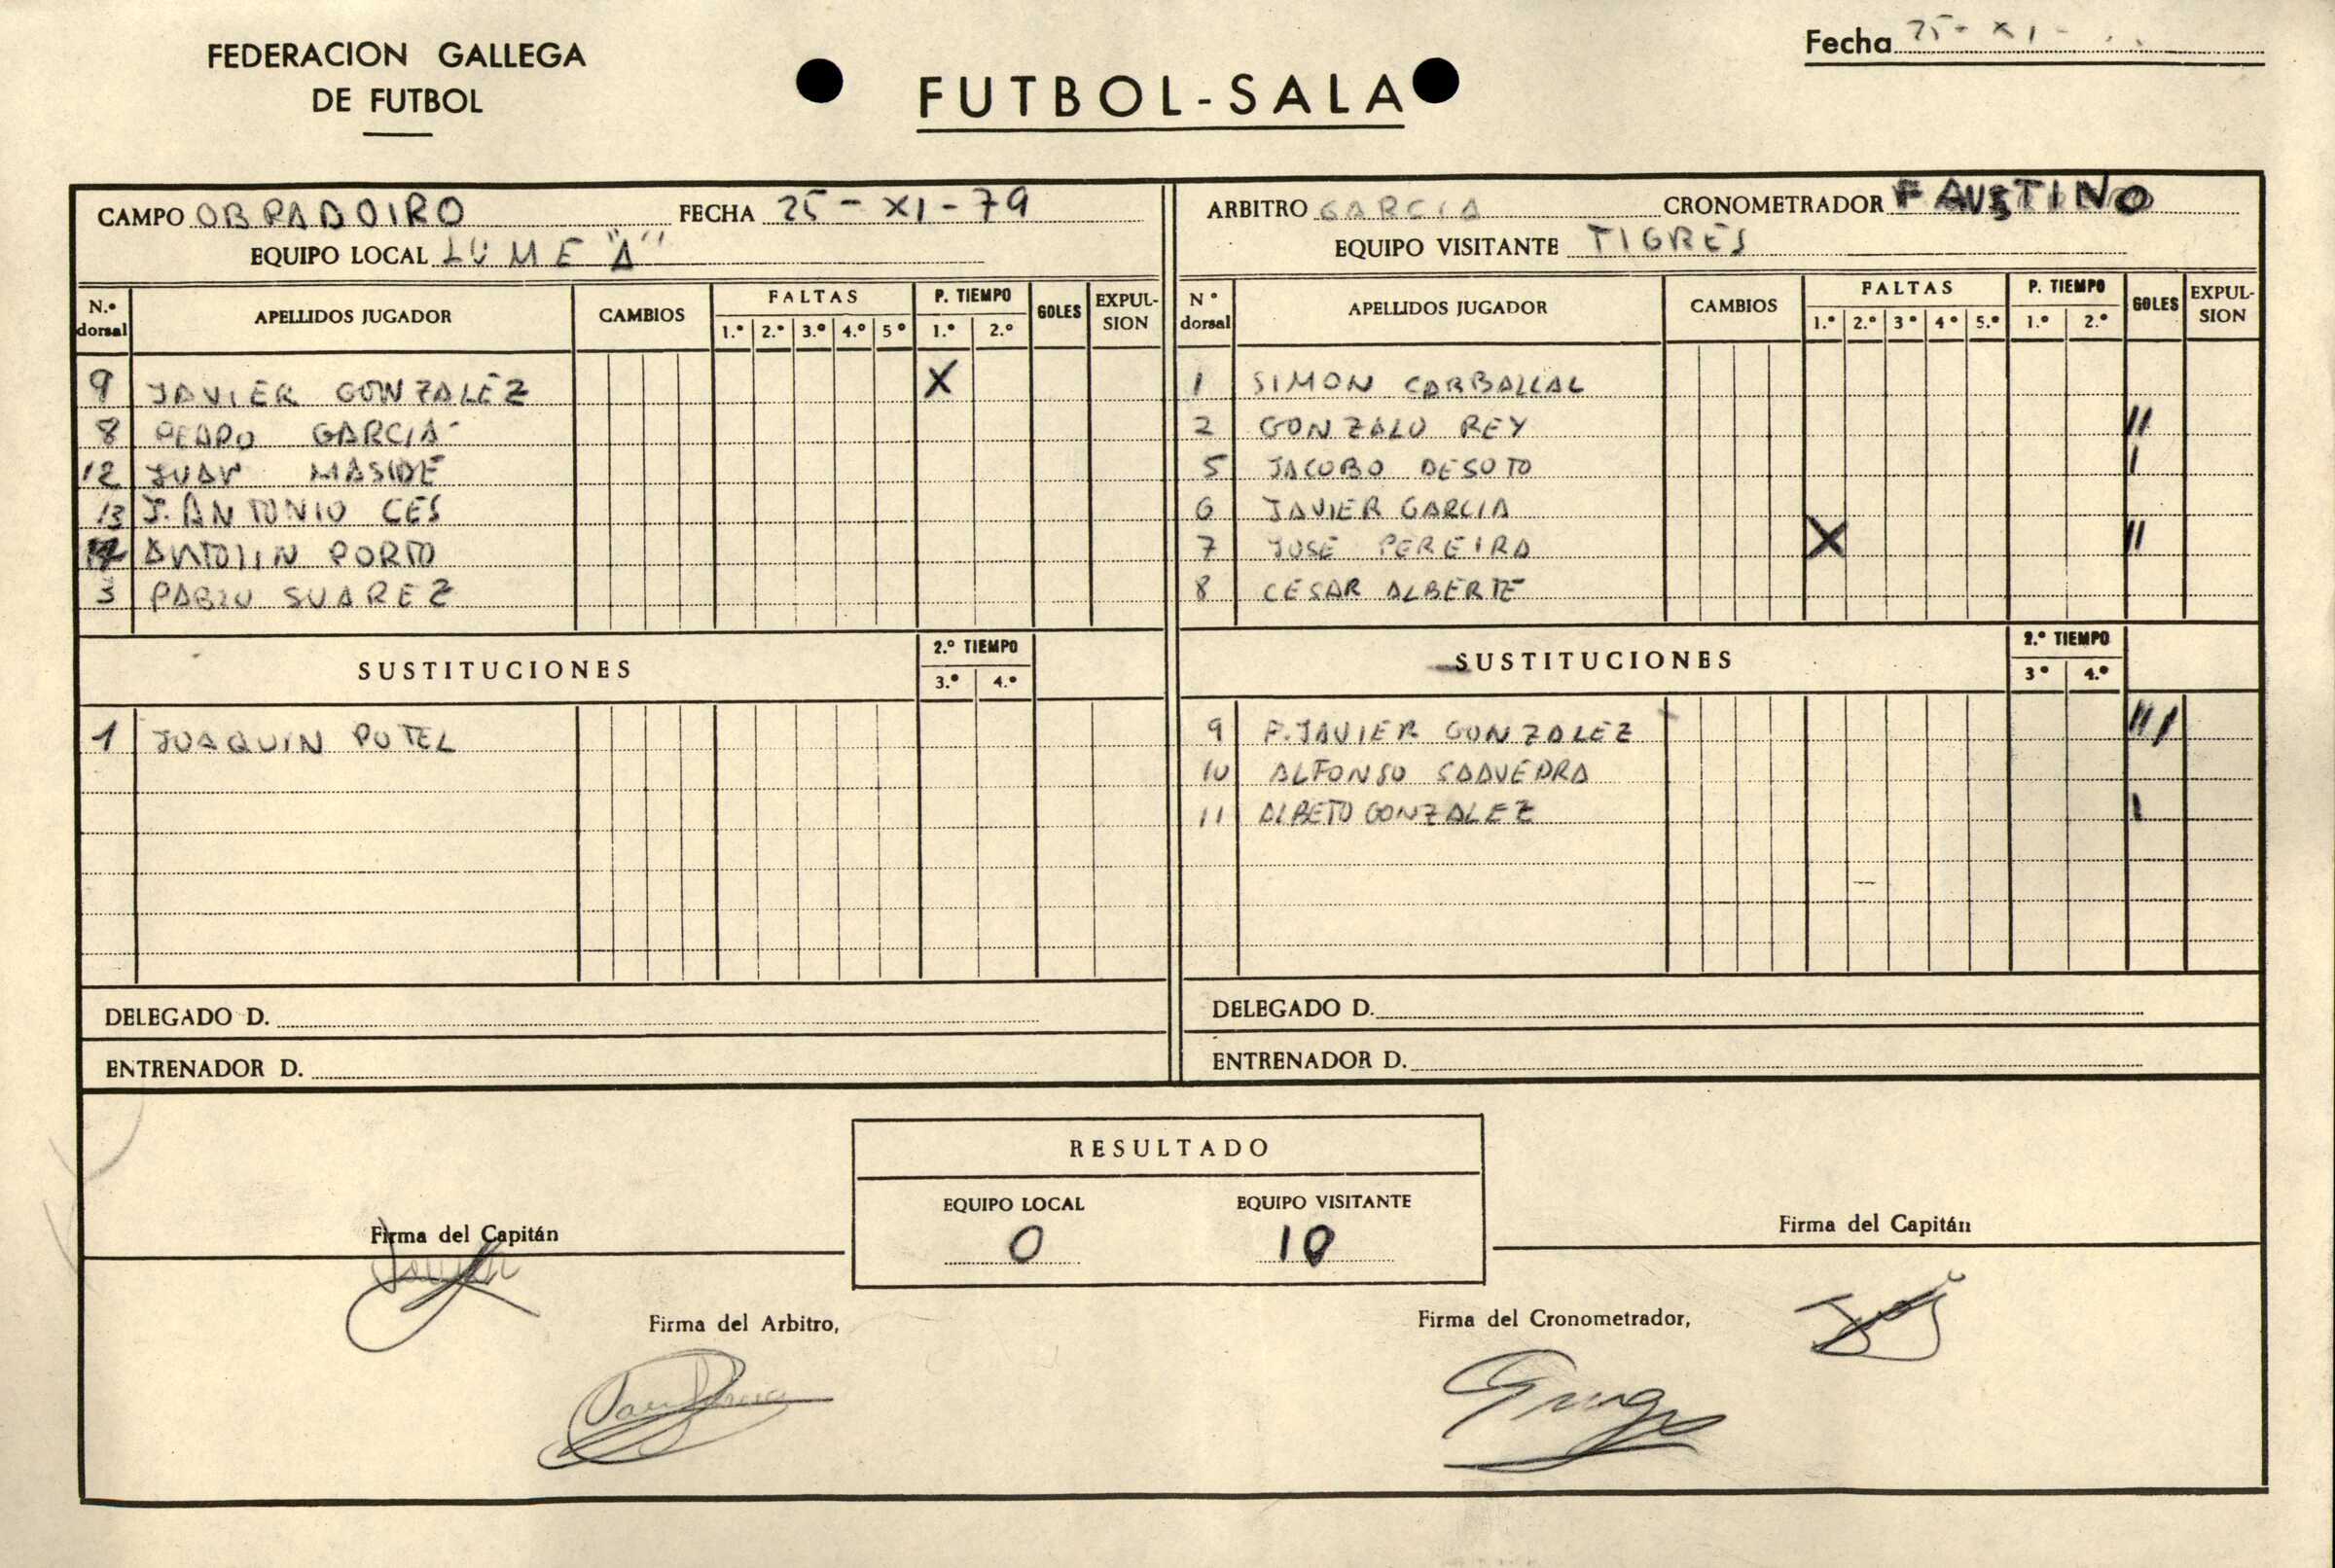 FEDERACION GALLEGA
DE FUTBOL
FUTBOL-SALA
Fecha 25-XI-
CAMPO OBRADOIRO FECHA 25-XI-79
EQUIPO LOCAL LUME "A"
ARBITRO GARCIA CRONOMETRADOR FAUSTINO
EQUIPO VISITANTE TIGRES
N.º dorsal APELLIDOS JUGADOR CAMBIOS FALTAS 1.º 2.º 3.º 4.º 5º P. TIEMPO 1.º 2.º GOLES EXPUL-SION
9 JAVIER GONZALEZ X
8 PEDRO GARCIA
12 JUAN MASIDE
13 J. ANTONIO CES
ANTOLIN PORTO
3 PABLO SUAREZ
SUSTITUCIONES 2.º TIEMPO 3.º 4.º
1 JOAQUIN POTEL
DELEGADO D.
ENTRENADOR D.
N º dorsal APELLIDOS JUGADOR CAMBIOS FALTAS 1.º 2.º 3º 4º 5.º P. TIEMPO 1.º 2.º GOLES EXPUL-SION
1 SIMON CARBALLAL
2 GONZALO REY II
5 JACOBO DESOTO I
6 JAVIER GARCIA
7 JOSE PEREIRA X II
8 CESAR ALBERTE
SUSTITUCIONES 2.º TIEMPO 3º 4.º
9 F. JAVIER GONZALEZ III
10 ALFONSO SAAVEDRA
11 ALBETO GONZALEZ I
DELEGADO D.
ENTRENADOR D.
RESULTADO
EQUIPO LOCAL EQUIPO VISITANTE
0 10
Firma del Capitán
Firma del Capitán
Firma del Arbitro,
Firma del Cronometrador,